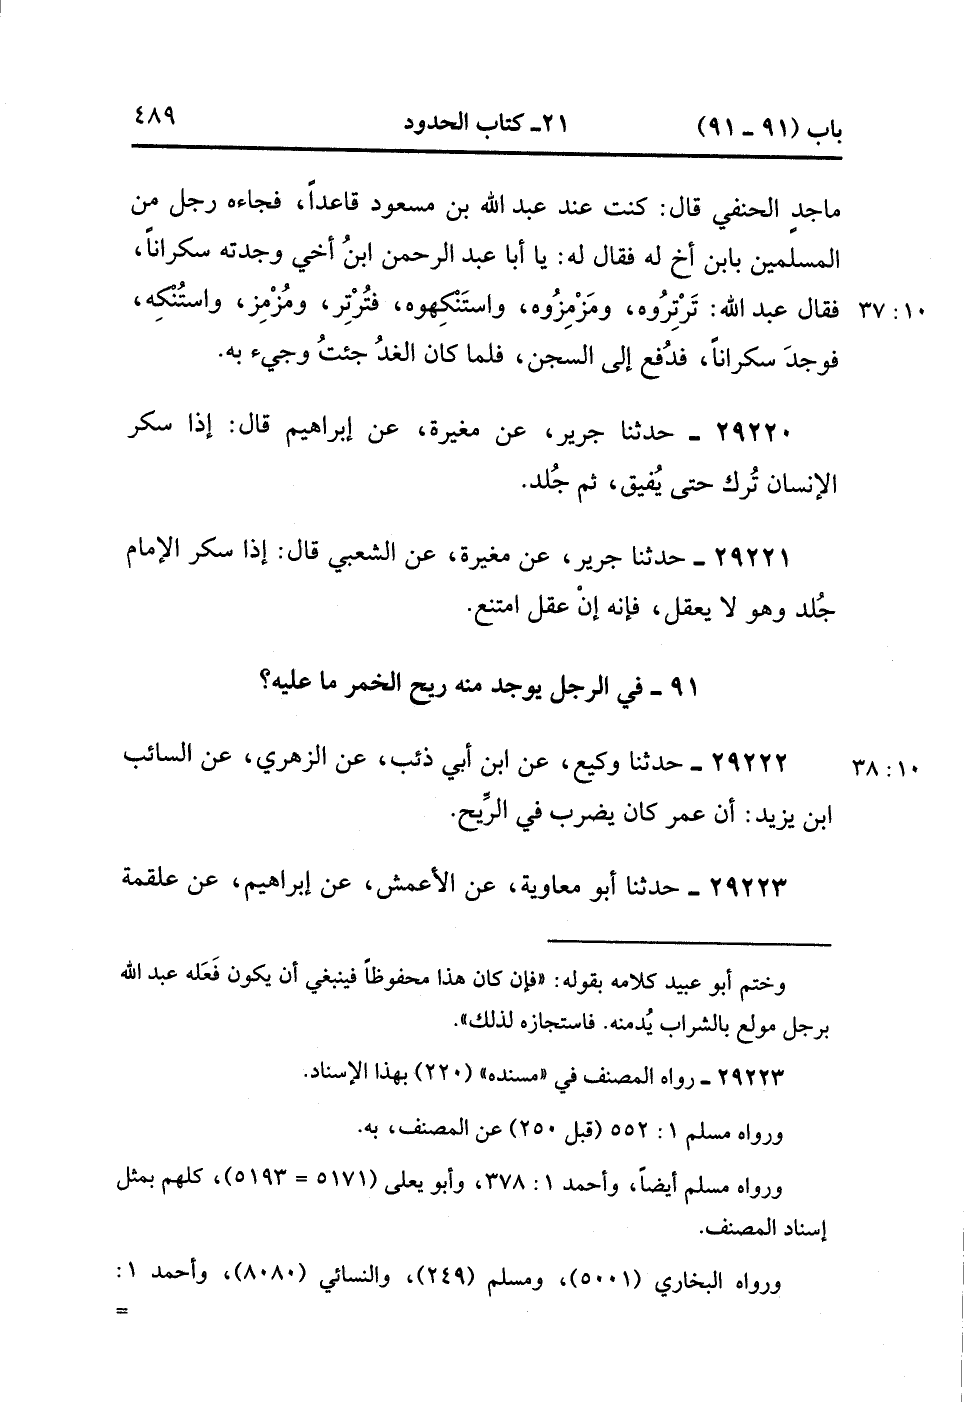 باب (٩١ ـ ٩١) ٢١ـ كتاب الحدود ٤٨٩
ماجدٍ الحنفي قال: كنت عند عبد الله بن مسعود قاعداً، فجاءه رجل من
المسلمين بابن أخ له فقال له: يا أبا عبد الرحمن ابنُ أخي وجدته سكراناً،
١٠: ٣٧ فقال عبد الله: تَرْتِرُوه، ومَزْمِزُوه، واستَنْكِهوه، فتُرْتِر، ومُزْمِز، واستُنْكِه،
فوجدَ سكراناً، فدُفع إلى السجن، فلما كان الغدُ جئتُ وجيء به.
٢٩٢٢٠ ـ حدثنا جرير، عن مغيرة، عن إبراهيم قال: إذا سكر
الإنسان تُرك حتى يُفيق، ثم جُلد.
٢٩٢٢١ ـ حدثنا جرير، عن مغيرة، عن الشعبي قال: إذا سكر الإمام
جُلد وهو لا يعقل، فإنه إنْ عقل امتنع.
٩١ ـ في الرجل يوجد منه ريح الخمر ما عليه؟
١٠: ٣٨ ٢٩٢٢٢ ـ حدثنا وكيع، عن ابن أبي ذئب، عن الزهري، عن السائب
ابن يزيد: أن عمر كان يضرب في الرِّيح.
٢٩٢٢٣ ـ حدثنا أبو معاوية، عن الأعمش، عن إبراهيم، عن علقمة
وختم أبو عبيد كلامه بقوله: «فإن كان هذا محفوظاً فينبغي أن يكون فَعَله عبد الله
برجل مولع بالشراب يُدمنه. فاستجازه لذلك».
٢٩٢٢٣ ـ رواه المصنف في «مسنده» (٢٢٠) بهذا الإسناد.
ورواه مسلم ١: ٥٥٢ (قبل ٢٥٠) عن المصنف، به.
ورواه مسلم أيضاً، وأحمد ١: ٣٧٨، وأبو يعلى (٥١٧١ = ٥١٩٣)، كلهم بمثل
إسناد المصنف.
ورواه البخاري (٥٠٠١)، ومسلم (٢٤٩)، والنسائي (٨٠٨٠)، وأحمد ١:
=